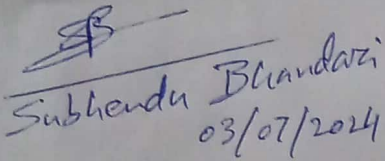 Subhendu Bhandari
03/07/2024